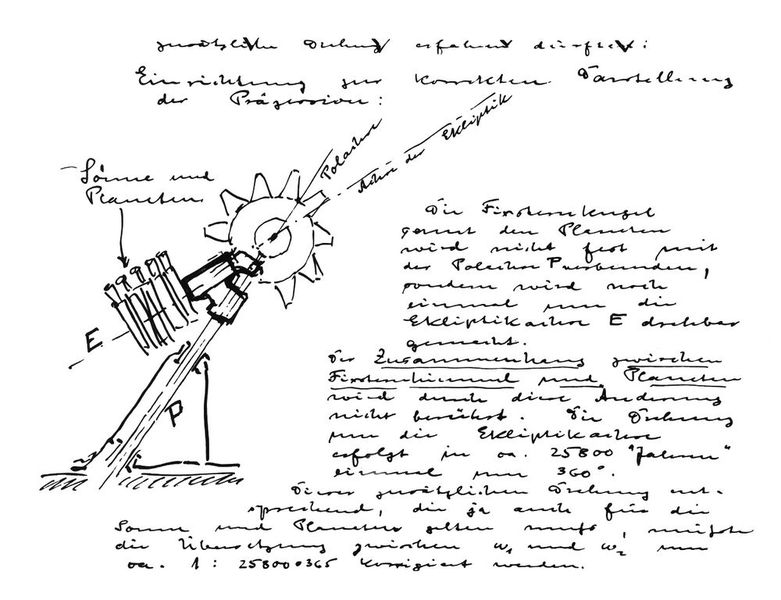 zusätzliche Drehung erfahren dürfte:
Einrichtung zur korrekten Darstellung
der Präzession:
Polachse
Achse der Ekliptik
Sonne und
Planeten
E
P
Die Fixsternkugel
samt den Planeten
wird nicht fest mit
der Polachse P verbunden,
sondern wird noch
einmal um die
Ekliptikachse E drehbar
gemacht.
Der Zusammenhang zwischen
Fixsternhimmel und Planeten
wird durch diese Änderung
nicht berührt. Die Drehung
um die Ekliptikachse
erfolgt in ca. 25800 "Jahren"
einmal um 360°.
Dieser zusätzlichen Drehung ent-
sprechend, die ja auch für die
Sonne und Planeten gelten muß, müßte
die Übersetzung zwischen ω₁ und ω₂ um
ca. 1 : 25800·365 korrigiert werden.